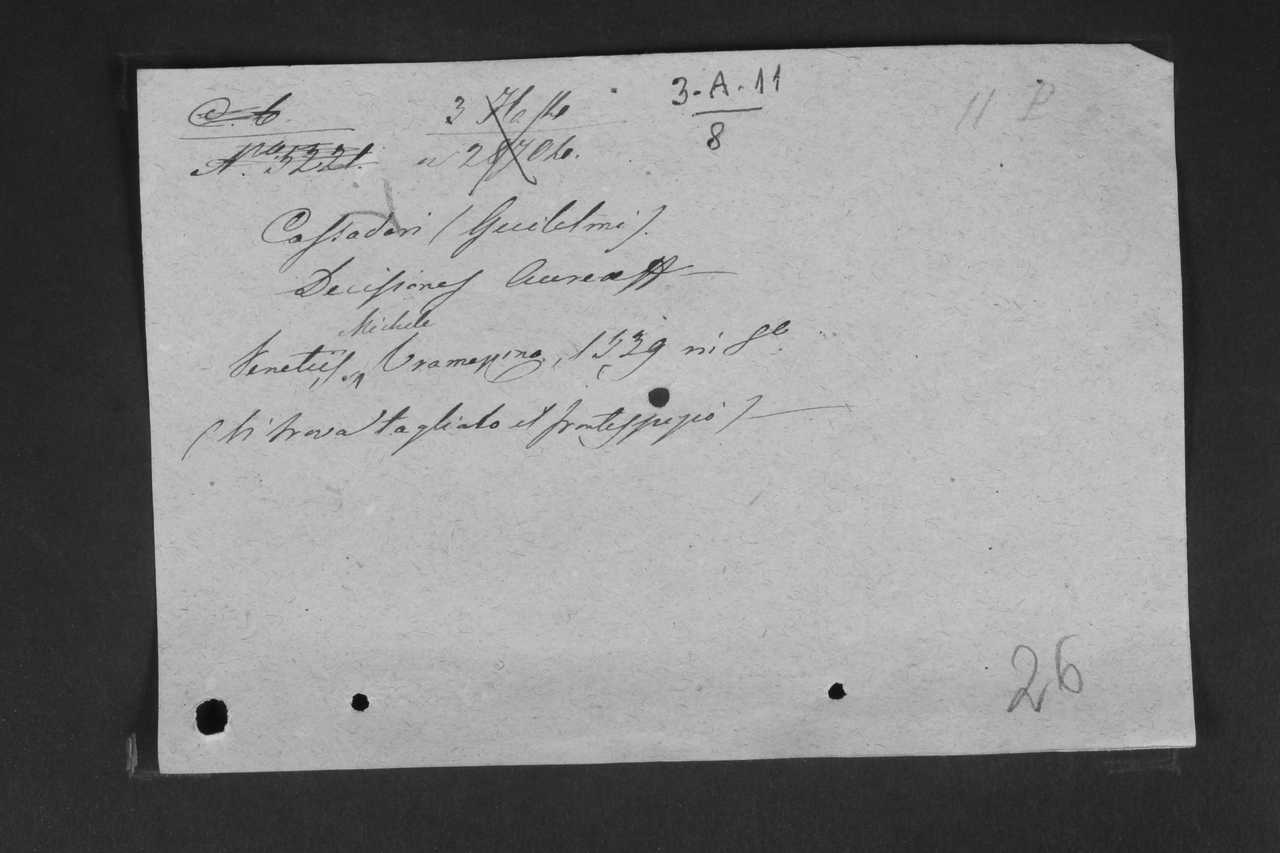 3-A-11
8
11 P
Cassadori (Guilelmi).
Decisiones Aureae
Michele
Venetiis, Tramezzino, 1539 in 8º
(Si trova tagliato il frontespizio)
26